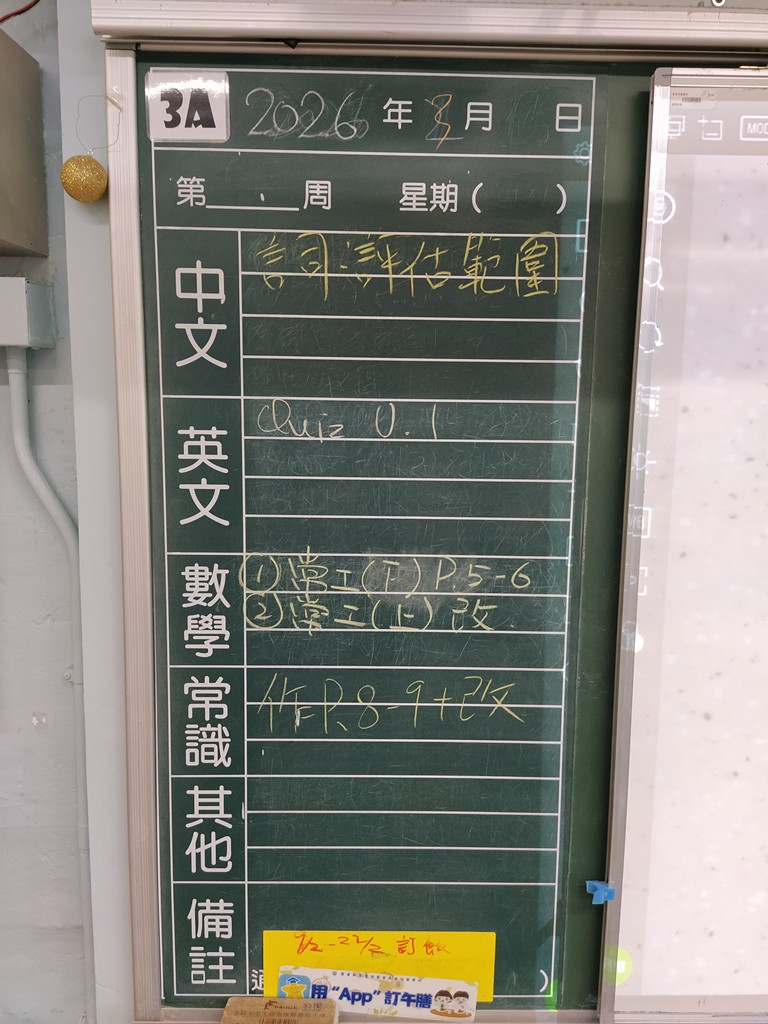 3A 2026 年 3 月 日
第 周 星期 ( )
中文
詞 評估範圍
英文
Quiz U.1
數學
① 常工(下) P.5-6
② 常工(上) 改
常識
作P.8-9+改
其他
備註
7/2-22/2 訂飯
用“App”訂午膳
MOD